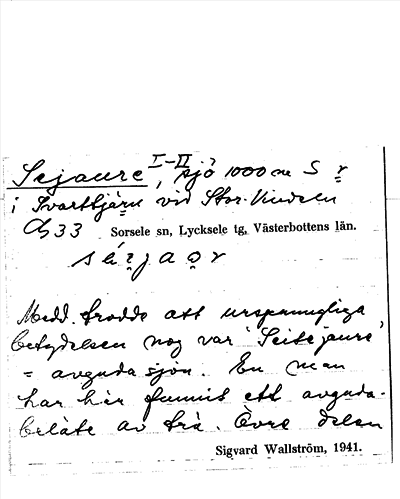 Sejaure I-II, sjö 1000 m S
i Svarttjärn vid Stor-Vindeln
33 Sorsele sn, Lycksele tg, Västerbottens län.
Medd. trodde att ursprungliga
betydelsen nog var 'Seitejaure'
= avguda sjön. En man
har här funnit ett avguda-
beläte av trä. Övre delen
Sigvard Wallström, 1941.